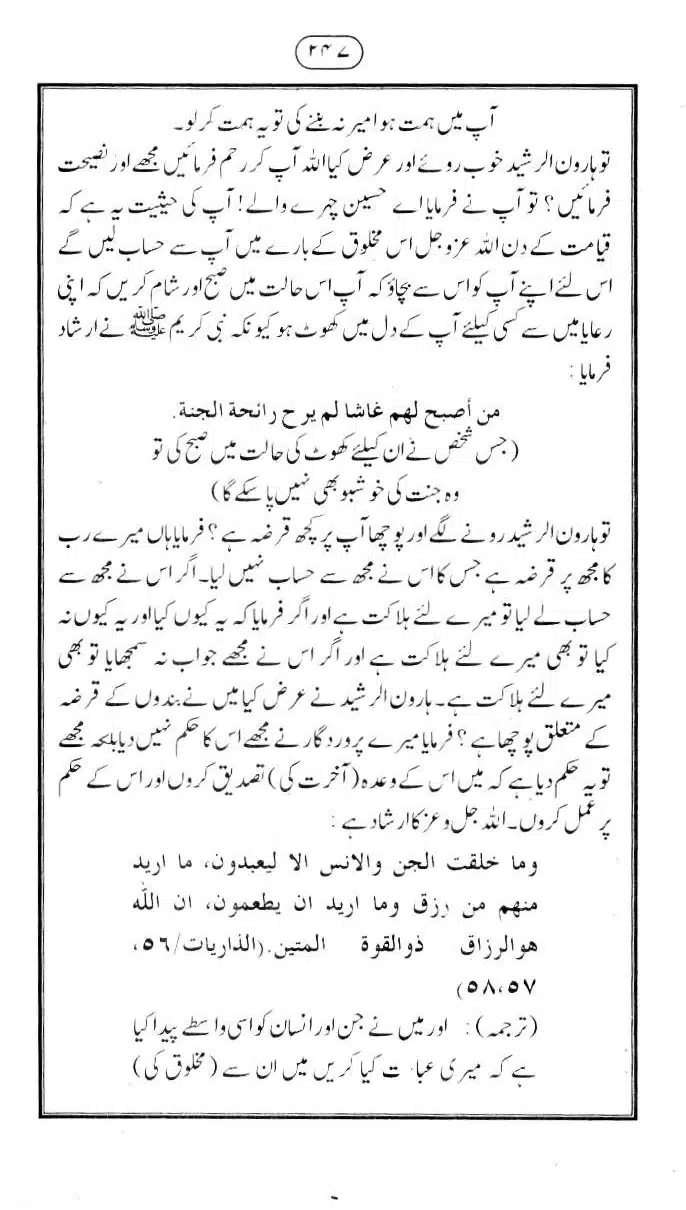 ۲۴۷
آپ میں ہمت ہو امیر نہ بننے کی تو یہ ہمت کر لو۔
تو ہارون الرشید خوب روئے اور عرض کیا اللہ آپ کر رحم فرمائیں مجھے اور نصیحت
فرمائیں؟ تو آپ نے فرمایا اے حسین چہرے والے! آپ کی حیثیت یہ ہے کہ
قیامت کے دن اللہ عزوجل اس مخلوق کے بارے میں آپ سے حساب لیں گے
اس لئے اپنے آپ کو اس سے بچاؤ کہ آپ اس حالت میں صبح اور شام کریں کہ اپنی
رعایا میں سے کسی کیلئے آپ کے دل میں کھوٹ ہو کیونکہ نبی کریم ﷺ نے ارشاد
فرمایا:
من أصبح لهم غاشا لم يرح رائحة الجنة.
(جس شخص نے ان کیلئے کھوٹ کی حالت میں صبح کی تو
وہ جنت کی خوشبو بھی نہیں پا سکے گا)
تو ہارون الرشید رونے لگے اور پوچھا آپ پر کچھ قرضہ ہے؟ فرمایا ہاں میرے رب
کا مجھ پر قرضہ ہے جس کا اس نے مجھ سے حساب نہیں لیا۔ اگر اس نے مجھ سے
حساب لے لیا تو میرے لئے ہلاکت ہے اور اگر فرمایا کہ یہ کیوں کیا اور یہ کیوں نہ
کیا تو بھی میرے لئے ہلاکت ہے اور اگر اس نے مجھے جواب نہ سمجھایا تو بھی
میرے لئے ہلاکت ہے۔ ہارون الرشید نے عرض کیا میں نے بندوں کے قرضہ
کے متعلق پوچھا ہے؟ فرمایا میرے پروردگار نے مجھے اس کا حکم نہیں دیا بلکہ مجھے
تو یہ حکم دیا ہے کہ میں اس کے وعدہ (آخرت کی) تصدیق کروں اور اس کے حکم
پر عمل کروں۔ اللہ جل وعز کا ارشاد ہے:
وما خلقت الجن والانس الا ليعبدون، ما اريد
منهم من رزق وما اريد ان يطعمون، ان الله
هوالرزاق ذوالقوة المتين.(الذاريات/٥٦،
٥٨،٥٧)
(ترجمہ): اور میں نے جن اور انسان کو اسی واسطے پیدا کیا
ہے کہ میری عبادت کیا کریں میں ان سے (مخلوق کی)